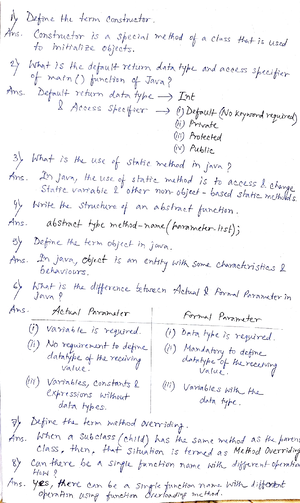 1) Define the term constructor.
Ans. Constructor is a special method of a class that is used
to initialize objects.
2) What is the default return data type and access specifier
of main() function of Java?
Ans. Default return data type → Int
& Access Specifier → (i) Default (No keyword required)
(ii) Private
(iii) Protected
(iv) Public
3) What is the use of static method in java?
Ans. In java, the use of static method is to access & change
static variable & other non object-based static methods.
4) Write the structure of an abstract function.
Ans. abstract type method-name(parameter list);
5) Define the term object in java.
Ans. In java, object is an entity with some characteristics &
behaviours.
6) What is the difference between Actual & Formal Parameter in
Java?
Ans. Actual Parameter | Formal Parameter
(i) Variable is required. | (i) Data type is required.
(ii) No requirement to define | (ii) Mandatory to define
datatype of the receiving | datatype of the receiving
value. | value.
(iii) Variables, constants & | (iii) Variables with the
expressions without | data type.
data types.
7) Define the term method overriding.
Ans. When a subclass (child) has the same method as the parent
class, then, that situation is termed as Method Overriding
8) Can there be a single function name with different operation
Ans. Yes, there can be a single function name with different
operation using function overloading method.